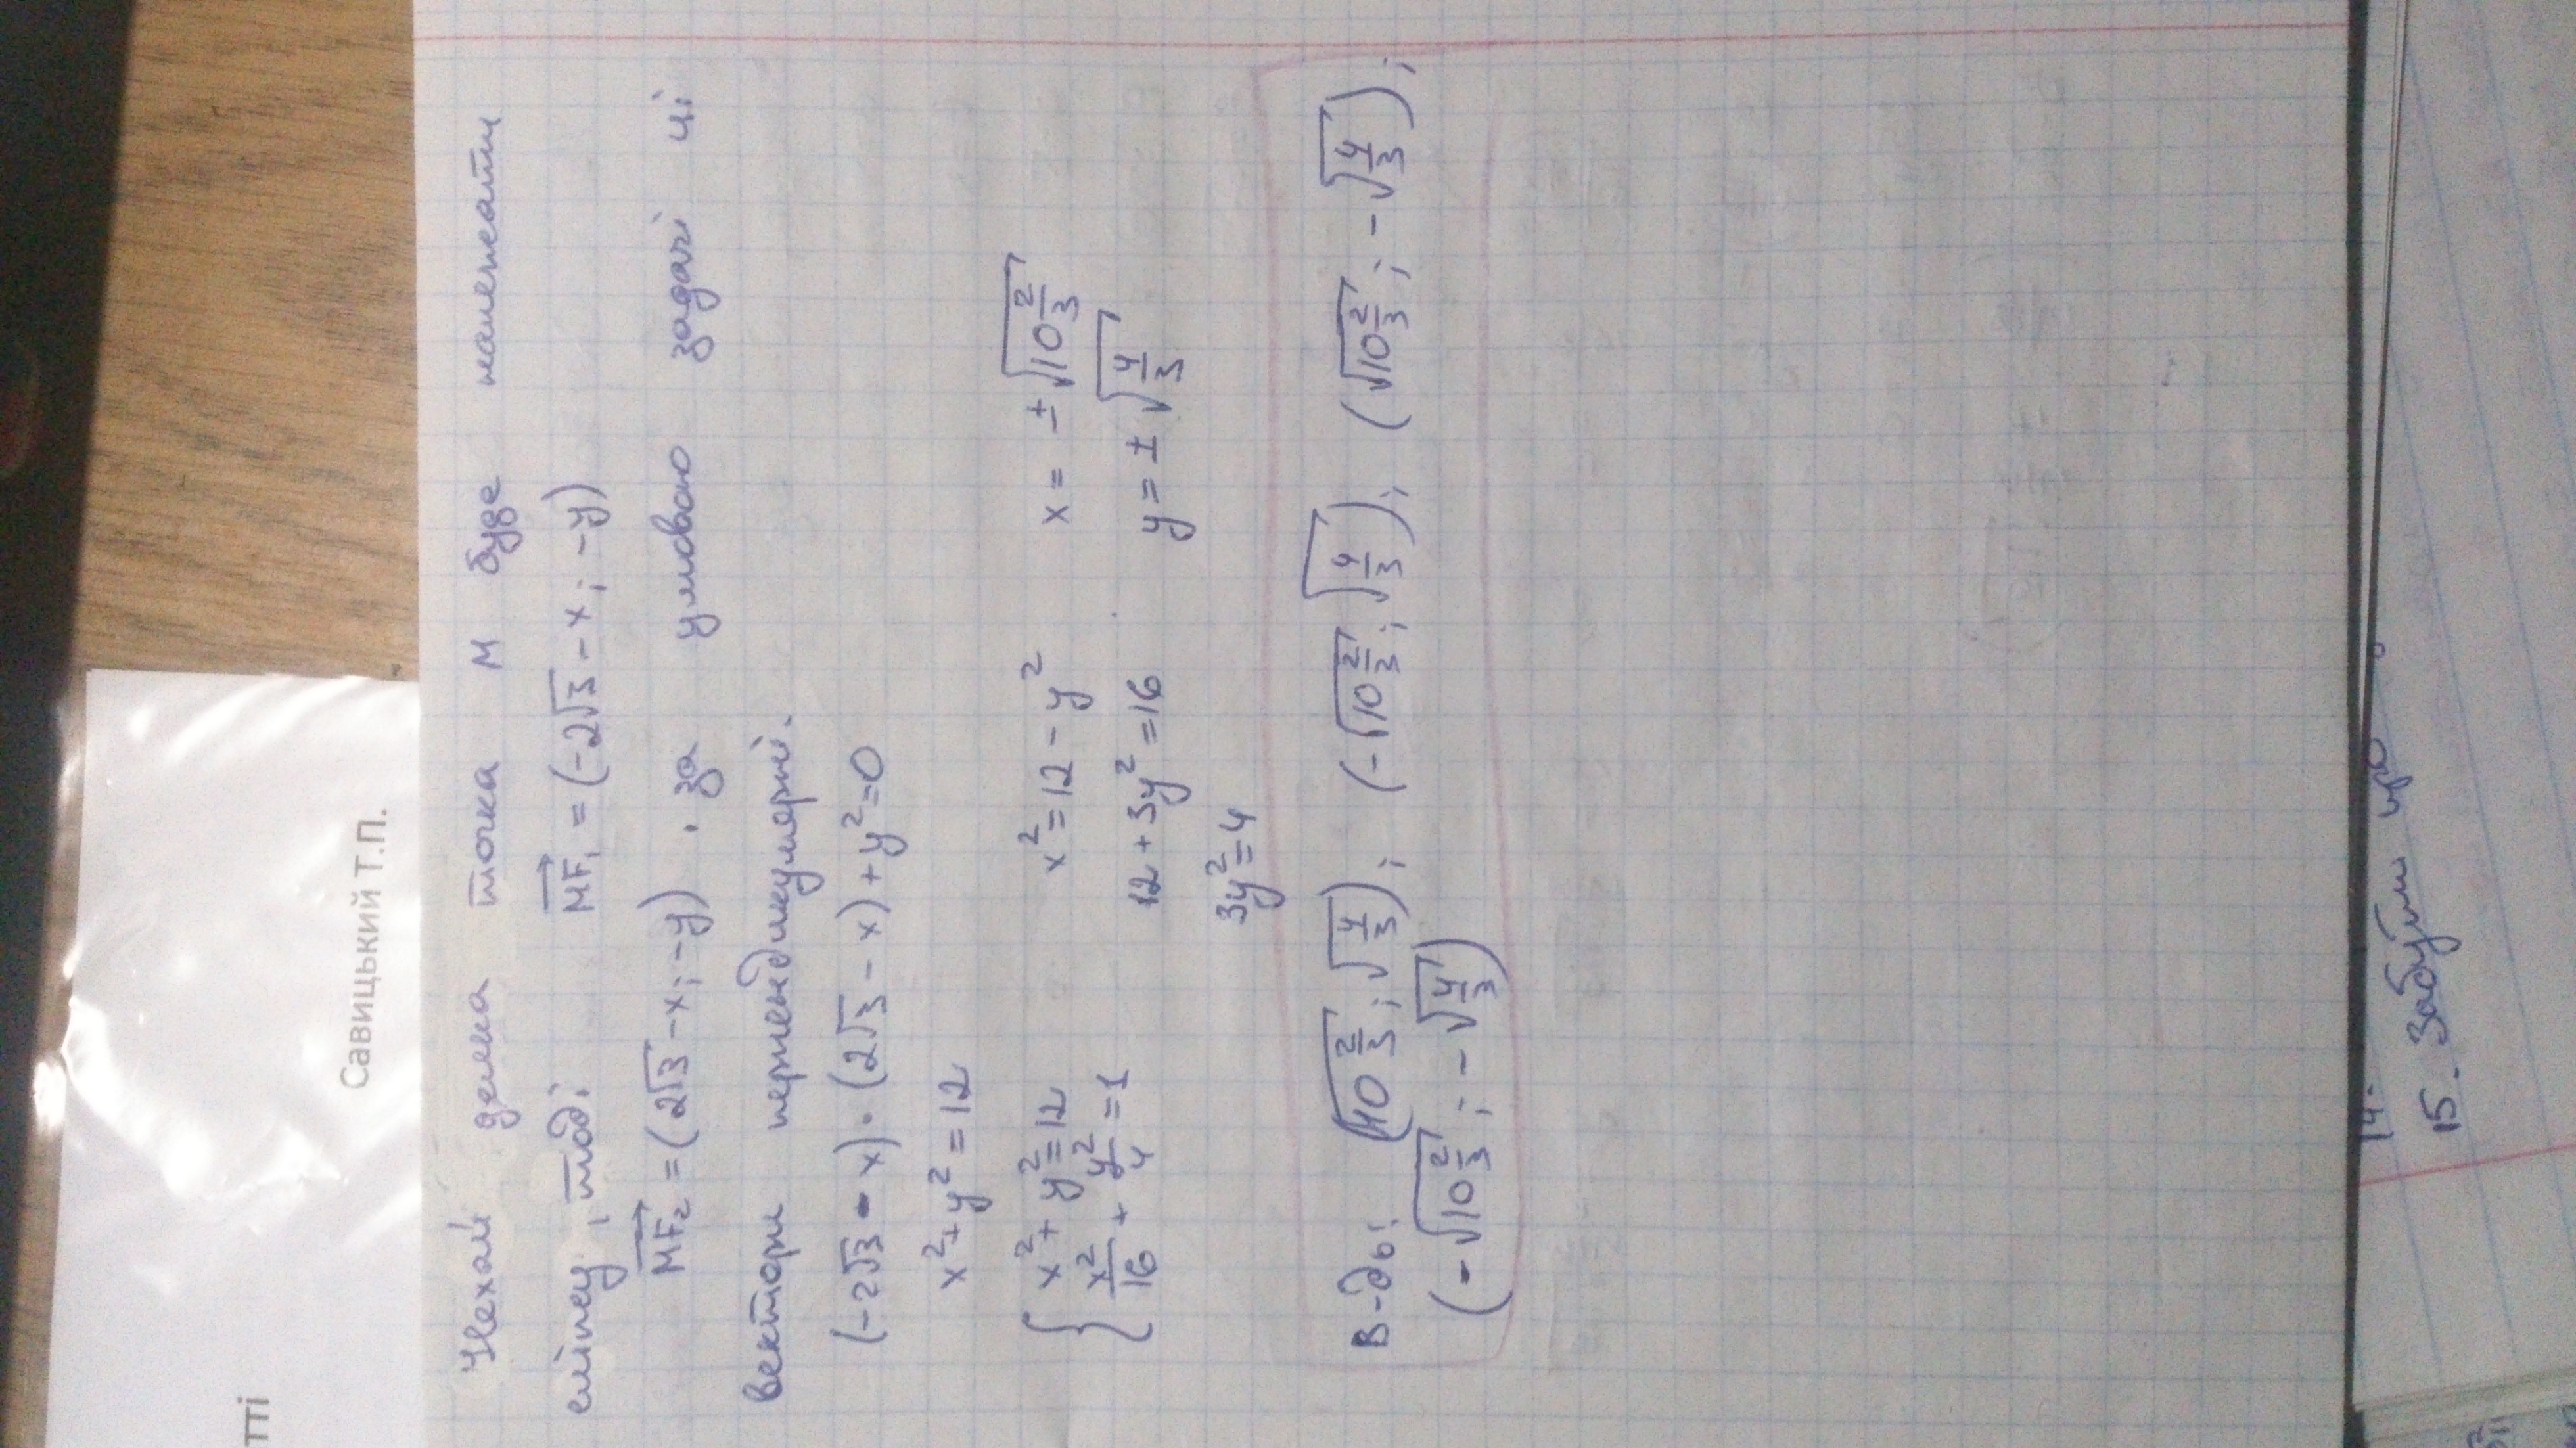 тті
Савицький Т.П.
Нехай деяка точка M буде належати
еліпсу, тоді MF₁ = (-2√3 - x; -y)
MF₂ = (2√3 - x; -y). за умовою задачі ці
вектори перпендикулярні.
(-2√3 - x) · (2√3 - x) + y² = 0
x² + y² = 12
{ x² + y² = 12 x² = 12 - y² x = ±√10 2/3
x²/16 + y²/4 = 1 12 + 3y² = 16 y = ±√4/3
3y² = 4
В-дь: (√10 2/3; √4/3); (-√10 2/3; √4/3); (√10 2/3; -√4/3);
(-√10 2/3; -√4/3)
14.
15. Забути про